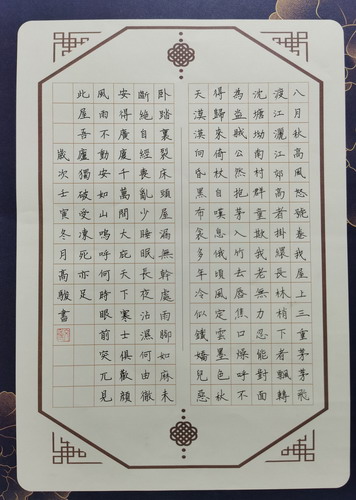 八月秋高風怒號卷我屋上三重茅茅飛
渡江灑江郊高者掛罥長林梢下者飄轉
沈塘坳南村群童欺我老無力忍能對面
為盜賊公然抱茅入竹去唇焦口燥呼不
得歸來倚杖自嘆息俄頃風定雲墨色秋
天漠漠向昏黑布衾多年冷似鐵嬌兒惡
臥踏裏裂床頭屋漏無幹處雨腳如麻未
斷絕自經喪亂少睡眠長夜沾濕何由徹
安得廣廈千萬間大庇天下寒士俱歡顏
風雨不動安如山嗚呼何時眼前突兀見
此屋吾廬獨破受凍死亦足
歲次壬寅冬月高駿書